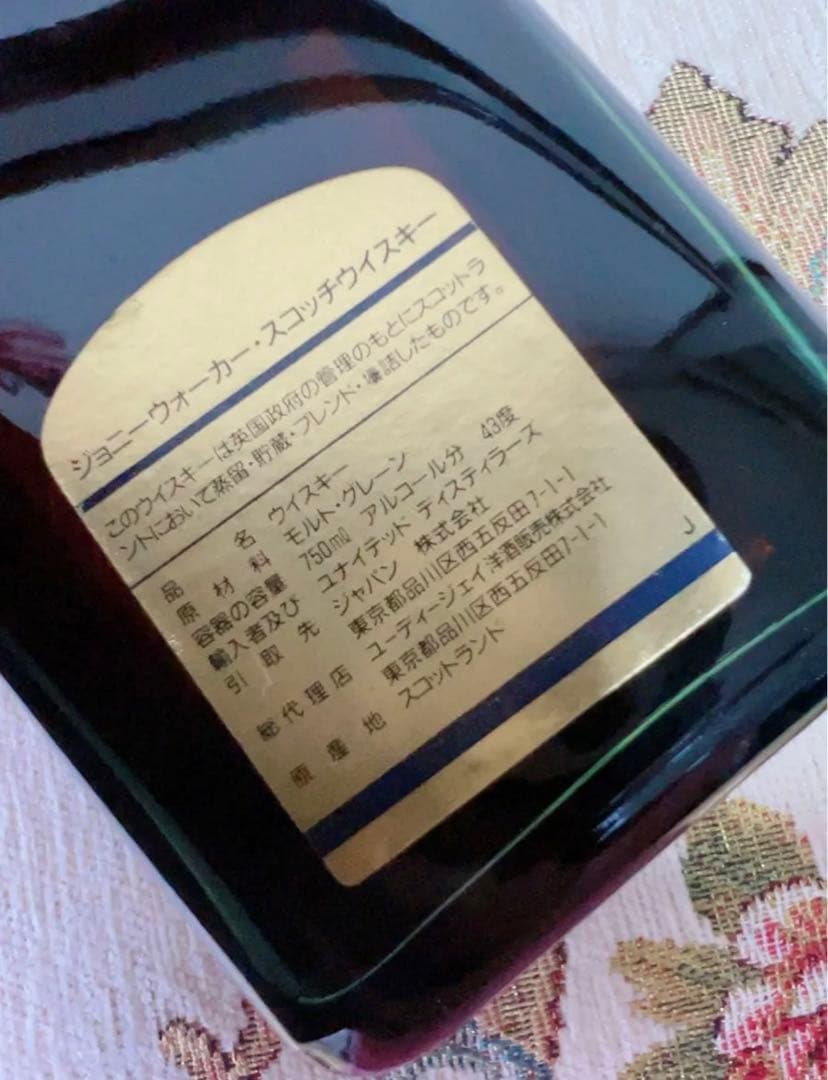 ジョニーウォーカー・スコッチウイスキー
このウイスキーは英国政府の管理のもとにスコットラ
ンドにおいて蒸留・貯蔵・ブレンド・壜詰したものです。
品名 ウイスキー
原材料 モルト・グレーン
容器の容量 750ml アルコール分 43度
輸入者及び ユナイテッド ディスティラーズ
引取先 ジャパン 株式会社
東京都品川区西五反田7-1-1
総代理店 ユーディージェイ洋酒販売株式会社
東京都品川区西五反田7-1-1
原産地 スコットランド
J